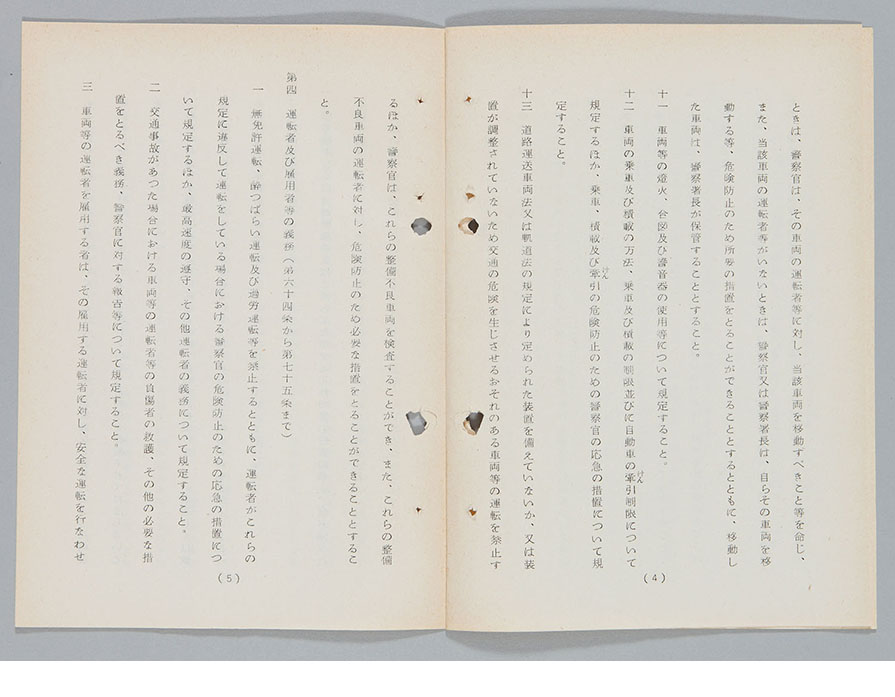 ときは、警察官は、その車両の運転者等に対し、当該車両を移動すべきこと等を命じ、
また、当該車両の運転者等がいないときは、警察官又は警察署長は、自らその車両を移
動する等、危険防止のため所要の措置をとることができることとするとともに、移動し
た車両は、警察署長が保管することとすること。
十一 車両等の燈火、合図及び警音器の使用等について規定すること。
十二 車両の乗車及び積載の方法、乗車及び積載の制限並びに自動車の牽引制限について
けん
規定するほか、乗車、積載及び牽引の危険防止のための警察官の応急の措置について規
けん
定すること。
十三 道路運送車両法又は軌道法の規定により定められた装置を備えていないか、又は装
置が調整されていないため交通の危険を生じさせるおそれのある車両等の運転を禁止す
(4)
るほか、警察官は、これらの整備不良車両を検査することができ、また、これらの整備
不良車両の運転者に対し、危険防止のため必要な措置をとることができることとするこ
と。
第四 運転者及び雇用者等の義務(第六十四条から第七十五条まで)
一 無免許運転、酔つぱらい運転及び過労運転等を禁止するとともに、運転者がこれらの
規定に違反して運転をしている場合における警察官の危険防止のための応急の措置につ
いて規定するほか、最高速度の遵守、その他運転者の義務について規定すること。
二 交通事故があつた場合における車両等の運転者等の負傷者の救護、その他の必要な措
置をとるべき義務、警察官に対する報告等について規定すること。
三 車両等の運転者を雇用する者は、その雇用する運転者に対し、安全な運転を行なわせ
(5)